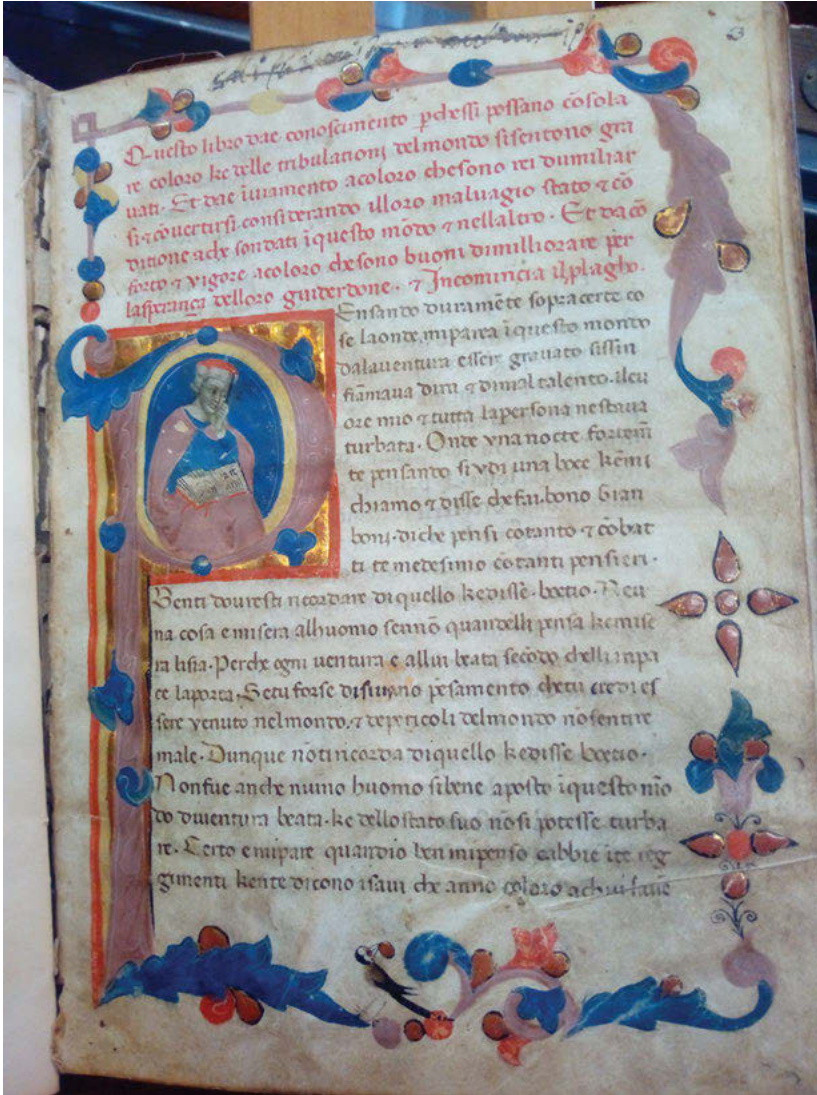 63
Questo libro dae conoscimento p̄ chessi possano cōsola
re coloro ke delle tribulationi delmondo sisentono gra
uati. Et dae iuiamento acoloro chesono rei dumiliar
si ⁊ cōuertirsi considerando illoro maluagio stato ⁊ cō
ditione ache son dati ī questo mōdo ⁊ nellaltro. Et da cō
forto ⁊ uigore acoloro che sono buoni dimilliorare per
lasperança delloro guiderdone. ⁊ Incomincia ilplagho.
PEnsando duramēte sopra certe co
se laonde miparea ī questo mondo
dalauentura essere grauato sissin
fiāmaua dira ⁊ dimal talento. ilcu
ore mio ⁊ tutta lapersona nestaua
turbata. Onde vna nocte fortem̄
te pensando si vdi una boce kemi
chiamo ⁊ disse che fai. bono Gian
boni. diche pensi cotanto ⁊ cōbat
ti te medesimo cotanti pensieri.
Benti douresti ricordare di quello kedisse boetio. Neu
na cosa e misera alhuomo sennō quandelli pensa kemise
ra lisia. Perche ogni uentura e allui beata secōdo chelli inpa
ce laporta. Setu forse disuiano pesamento chetu credi es
sere venuto nelmondo. ⁊ depericoli delmondo nōsentire
male. Dunque nōtiricorda diquello kedisse boetio.
Nonfue anche niuno huomo sibene aposto ī questo mō
do diuentura beata. ke dellostato suo nōsi potesse turba
re. Certo emipare quandio ben mipenso cabbie ite reg
gimenti kente dicono isaui che anno coloro achui faue